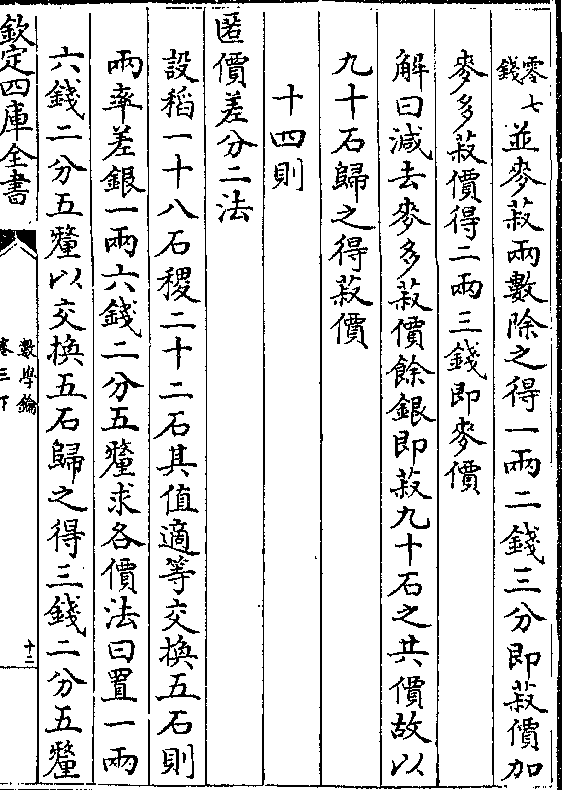 零七
錢
並麥菽兩數除之得一兩二錢三分即菽價加
麥多菽價得二兩三錢即麥價
解曰減去麥多菽價餘銀即菽九十石之共價故以
九十石歸之得菽價
十四則
匿價差分二法
設稻一十八石稷二十二石其值適等交換五石則
兩率差銀一兩六錢二分五釐求各價法曰置一兩
六錢二分五釐以交換五石歸之得三錢二分五釐
欽定四庫全書
數學鑰
卷三下
十三